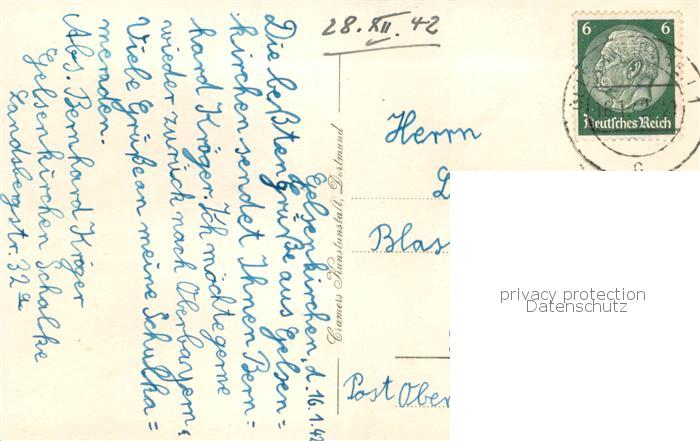 28. XII. 42
Gelsenkirchen, d. 16.1.42
Die beßten Grüße aus Gelsen=
kirchen sendet Ihnen Bern=
hard Kröger. Ich möchte gerne
wieder zurück nach Oberbayern.
Viele Grüße an meine Schulka=
meraden.
Abs. Bernhard Kröger
Gelsenkirchen Schalke
Landsbergstr. 32a
Cramers Kunstanstalt, Dortmund
6 6
Deutsches Reich
Herrn
Blas
Post Ober
privacy protection
Datenschutz